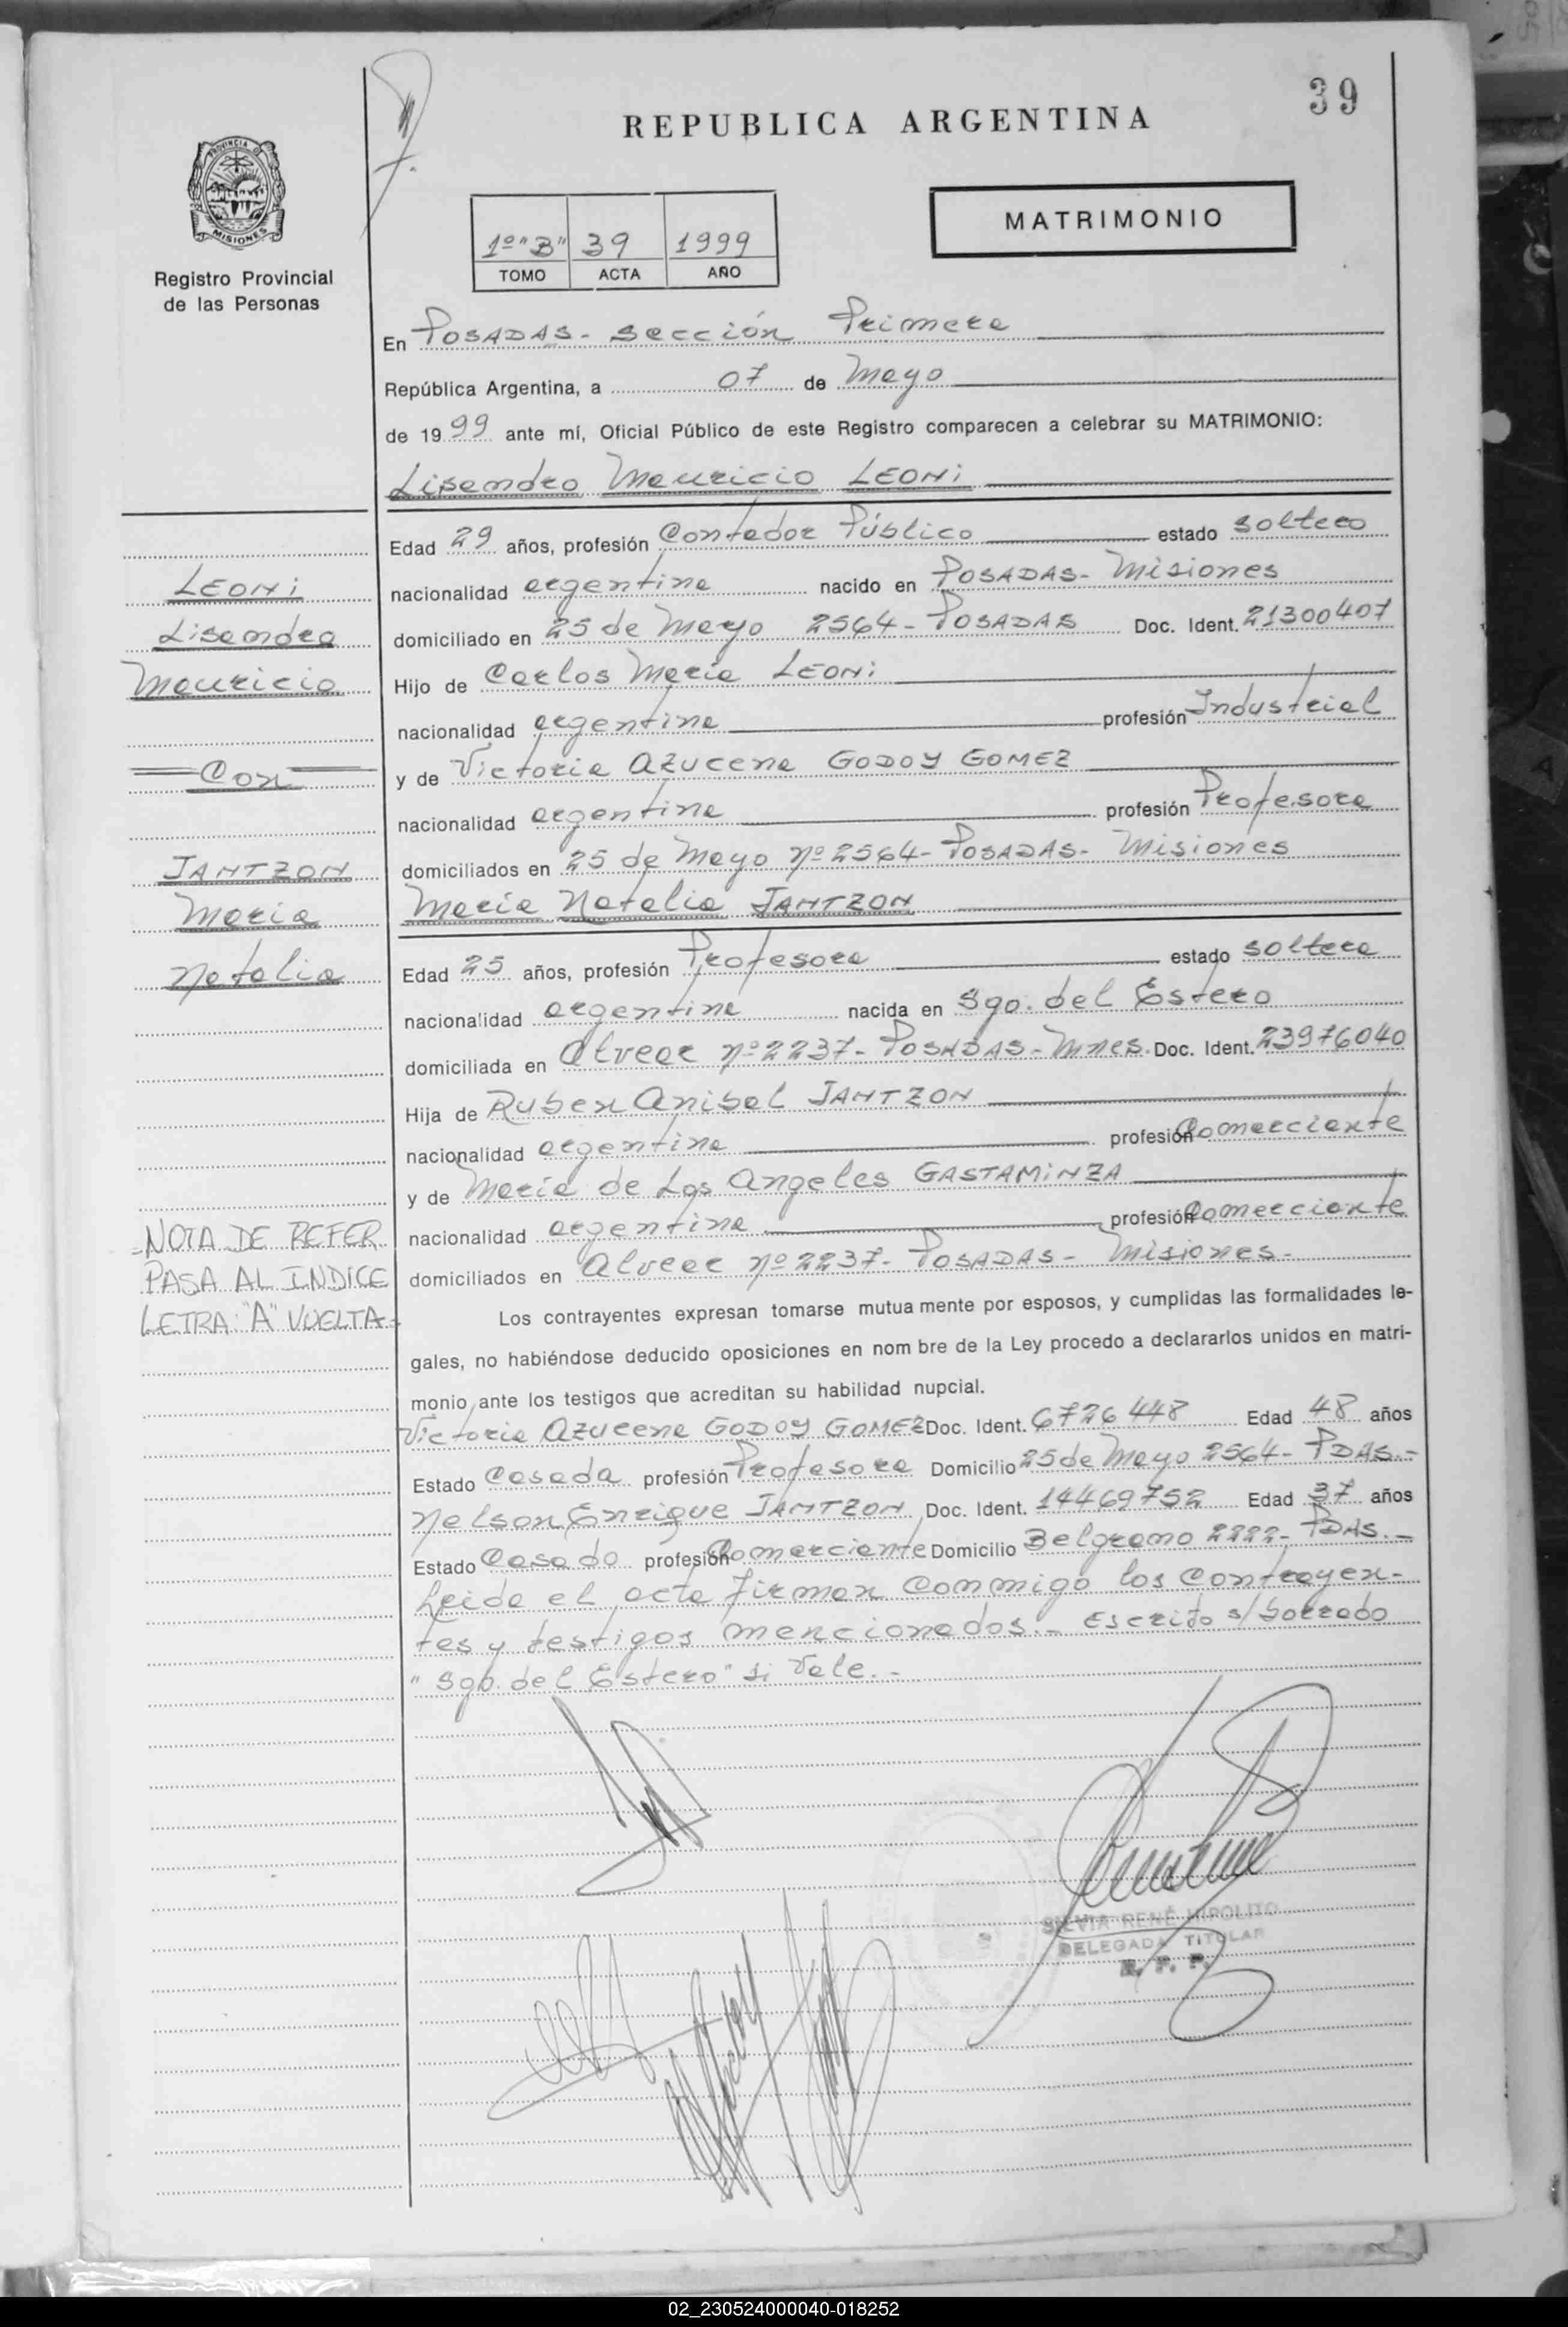 39
REPUBLICA ARGENTINA
PROVINCIA D
MISIONES
Registro Provincial
de las Personas
1º "B" 39 1999
TOMO ACTA AÑO
MATRIMONIO
En POSADAS - sección Primera
República Argentina, a 07 de Mayo
de 1999 ante mí, Oficial Público de este Registro comparecen a celebrar su MATRIMONIO:
Lisandro Mauricio LEONi
Edad 29 años, profesión Contador Público estado soltero
nacionalidad argentina nacido en POSADAS - Misiones
domiciliado en 25 de Mayo 2564 - POSADAS Doc. Ident. 21300407
Hijo de Carlos María LEONi
nacionalidad argentina profesión Industrial
y de Victoria Azucena GODOY GOMEZ
nacionalidad argentina profesión Profesora
domiciliados en 25 de Mayo nº 2564 - POSADAS - Misiones
María Natalia JANTZON
Edad 25 años, profesión Profesora estado soltera
nacionalidad argentina nacida en Sgo. del Estero
domiciliada en Alvear nº 2237 - POSADAS - Mnes. Doc. Ident. 23976040
Hija de Ruben Anibal JANTZON
nacionalidad argentina profesión Comerciante
y de María de Los Angeles GASTAMiNZA
nacionalidad argentina profesión Comerciante
domiciliados en Alvear nº 2237 - POSADAS - Misiones -
Los contrayentes expresan tomarse mutua mente por esposos, y cumplidas las formalidades le-
gales, no habiéndose deducido oposiciones en nom bre de la Ley procedo a declararlos unidos en matri-
monio ante los testigos que acreditan su habilidad nupcial.
Victoria Azucena GODOY GOMEZ Doc. Ident. 6726448 Edad 48 años
Estado Casada profesión Profesora Domicilio 25 de Mayo 2564 - PDAS. -
Nelson Enrique JANTZON Doc. Ident. 14469752 Edad 37 años
Estado Casado profesión Comerciante Domicilio Belgrano 2222 - PDAS. -
Leida el acta firman conmigo los contrayen-
tes y testigos mencionados. - Escrito s/borrado
"Sgo. del Estero" si vale. -
LEONi
Lisandro
Mauricio
Con
JANTZON
María
Natalia
NOTA DE REFER
PASA AL INDICE
LETRA: "A" VUELTA -
SILVIA RENÉ HIPOLITO
DELEGADA TITULAR
R. P. P.
02_230524000040-018252